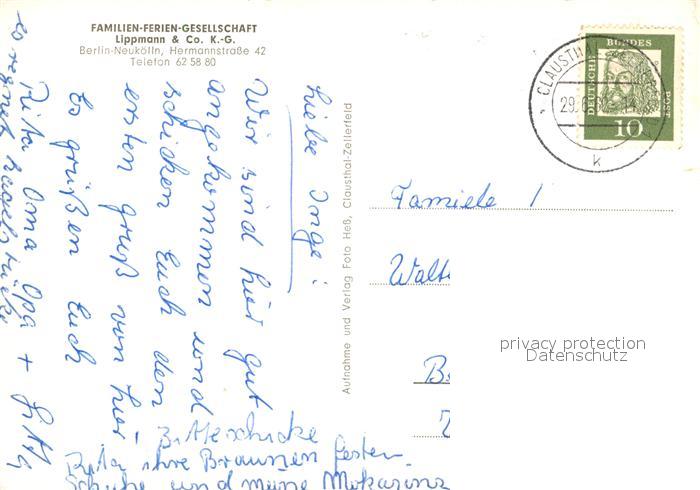 FAMILIEN-FERIEN-GESELLSCHAFT
Lippmann & Co. K.-G.
Berlin-Neukölln, Hermannstraße 42
Telefon 62 58 80
Liebe Inge!
Wir sind hier gut
angekommen und
schicken Euch den
ersten gruß von hier
Es grüßen Euch
Rita Oma Opa +
es regnet
! Bitte schicke
Rita ihre Braunen festen
Schuhe und meine Mokassins
Aufnahme und Verlag Foto Heß, Clausthal-Zellerfeld
CLAUSTHAL
29.6
k
DEUTSCHE
BUNDES
POST
10
Familie
Walt
B
privacy protection
Datenschutz